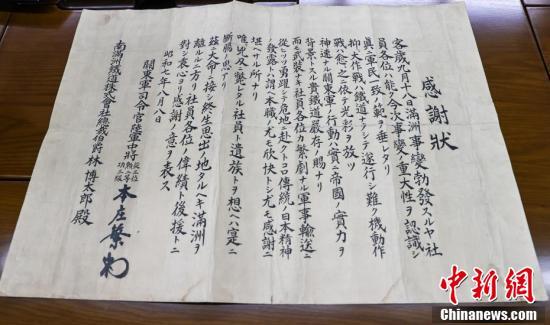 感謝狀
客歳九月十八日滿洲事變勃發スルヤ社
員各位ハ能ク今次事變ノ重大性ヲ認識シ
眞ニ軍民一致ノ範ヲ垂レタリ
抑〻大作戰ハ鐵道ナクシテ遂行シ難ク機動作
戰ハ愈〻之ニ依テ光彩ヲ放ツ
神速ナル關東軍ノ行動ハ實ニ帝國ノ實力ヲ
背景トスル貴鐵道嚴存ノ賜ナリ
而モ武裝ナキ社員各位カ繁劇ナル軍事輸送ニ
從ヒツツ勇躍シテ危地ニ赴クトコロ傳統ノ日本精神
ノ發露トハ謂ヘ本職ノ尤モ欣快トシ尤モ感謝ニ
堪ヘサル所ナリ
唯兇刃ニ斃レタル社員ト遺族トヲ想ヘハ寔ニ
斷腸ノ思アリ
茲ニ大命ニ接シ終生思出ノ地タルヘキ滿洲ヲ
離ルルニ方リ社員各位ノ偉績ト後援トニ
對シ衷心ヨリ感謝ノ意ヲ表ス
昭和七年八月八日
關東軍司令官陸軍中將 本庄繁
南滿洲鐵道株式會社總裁伯爵林博太郎殿
中新網
Chinanews.com